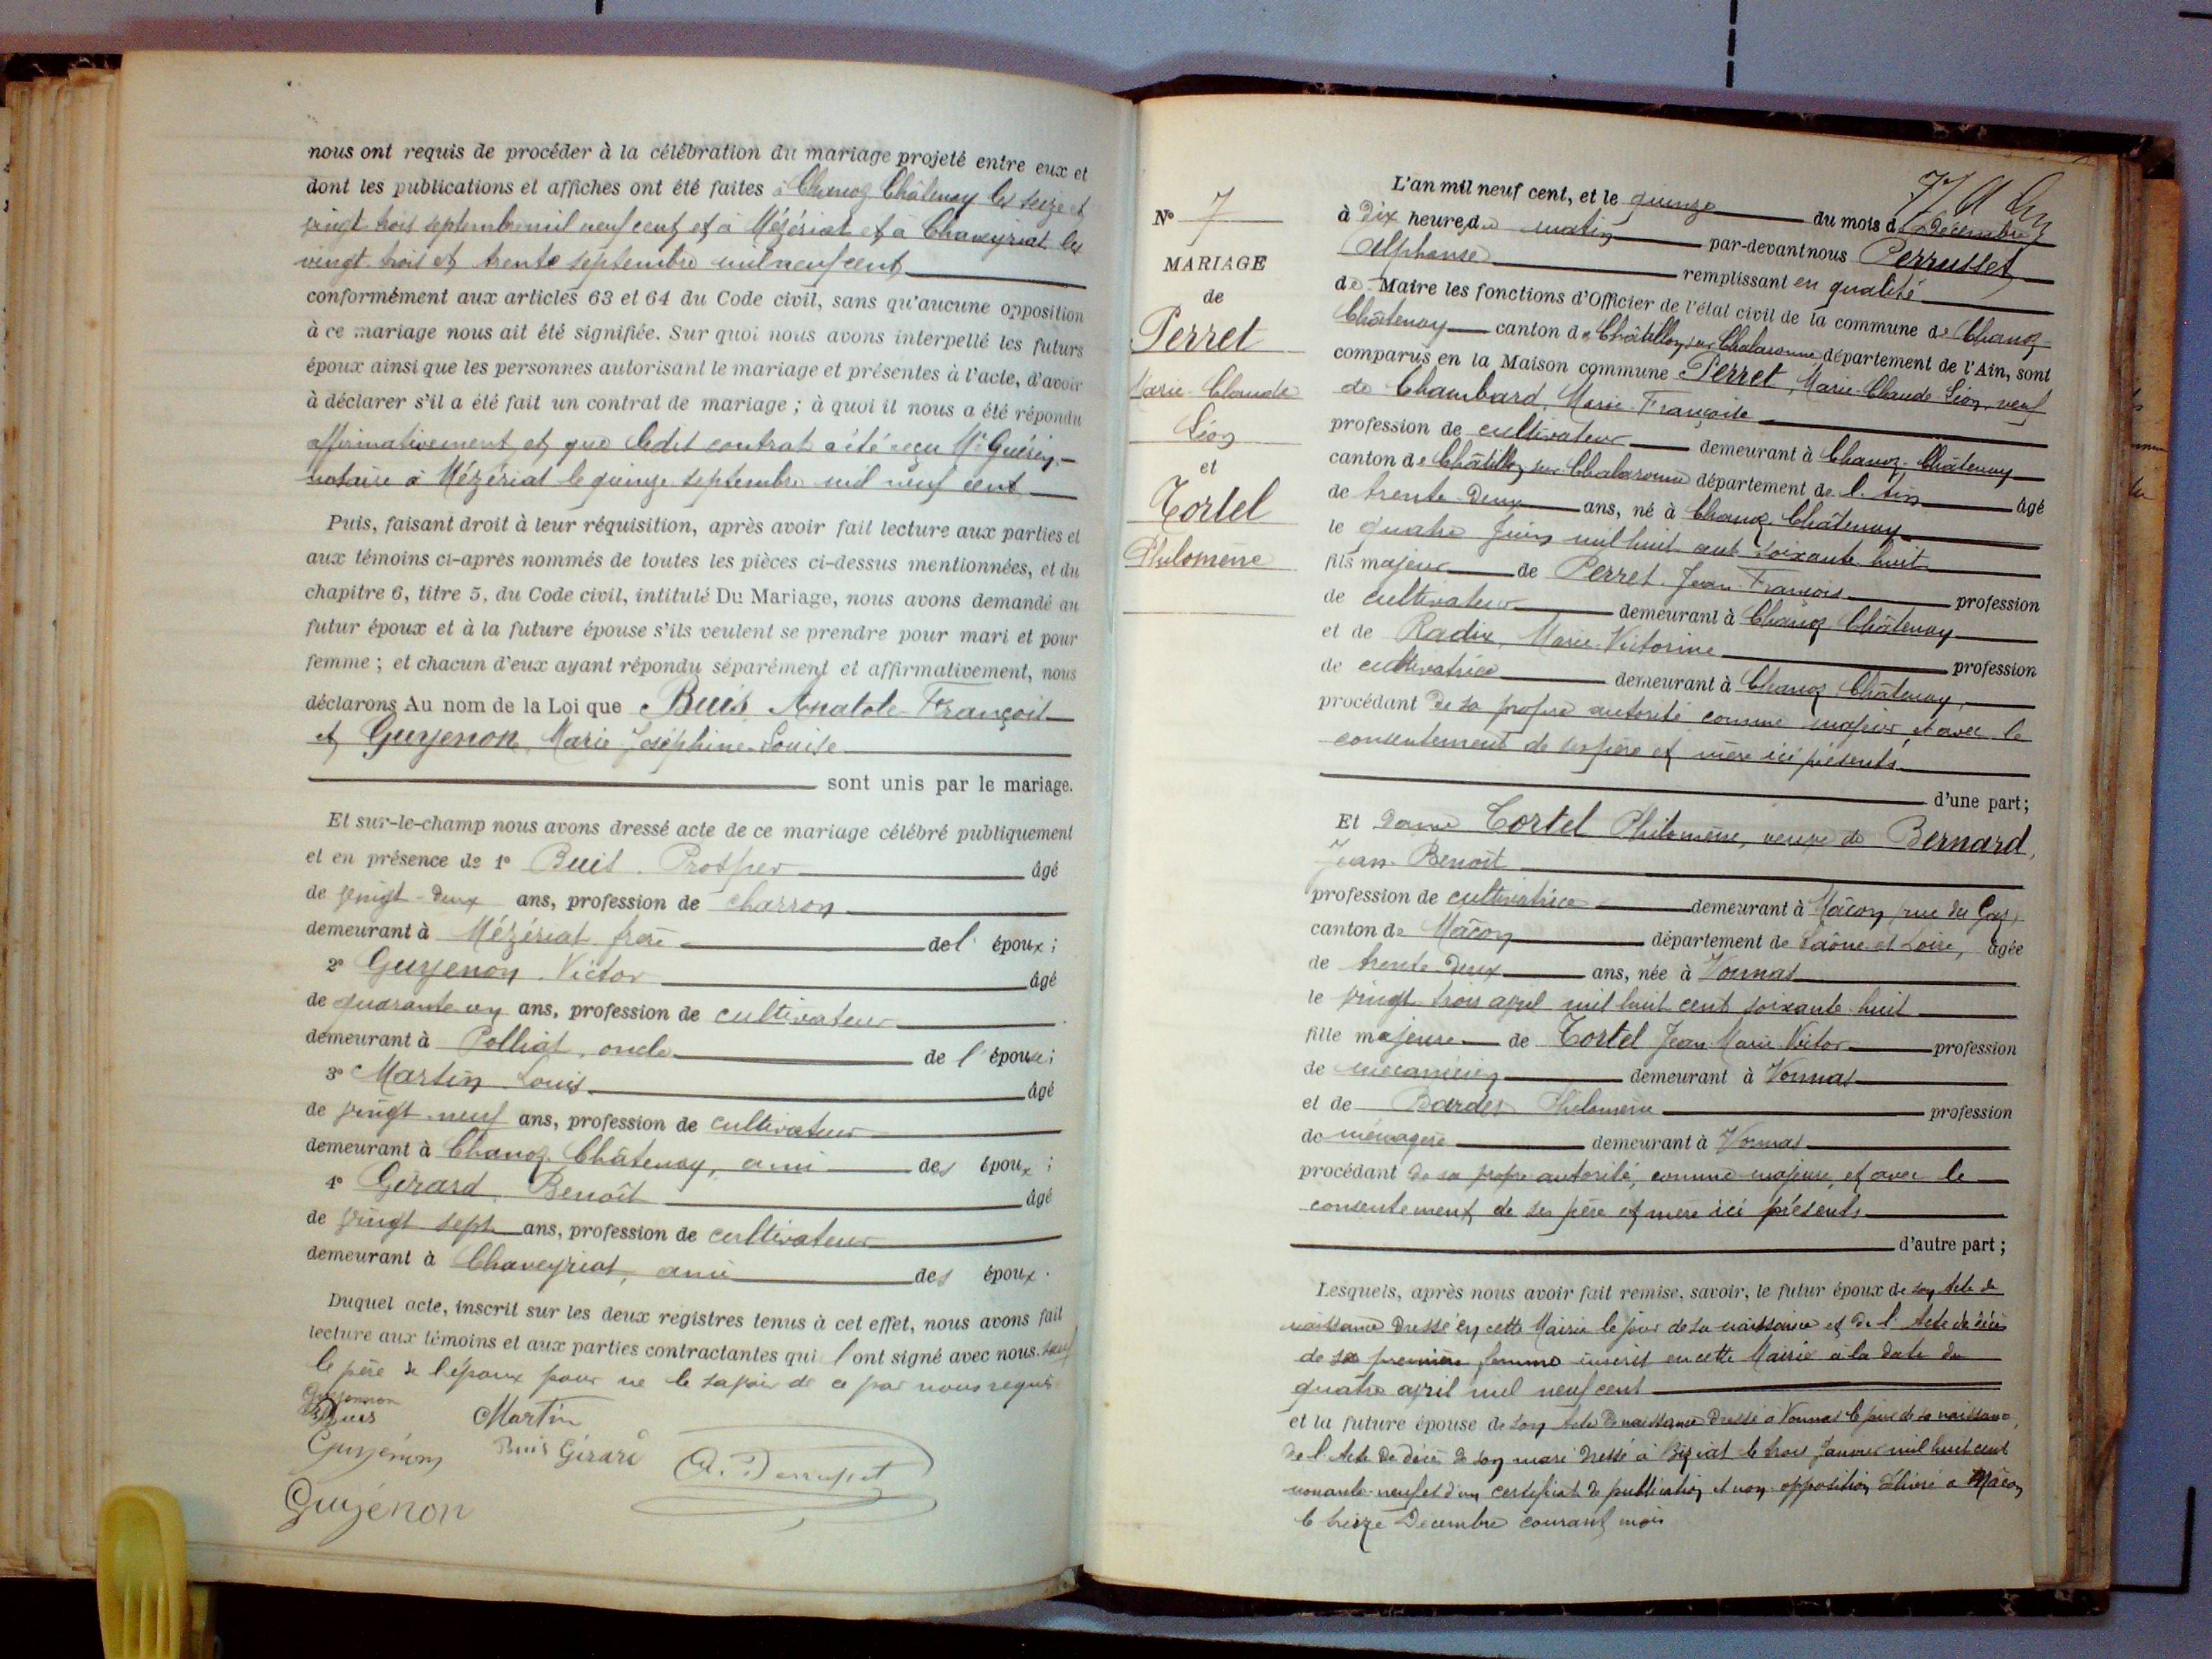 nous ont requis de procéder à la célébration du mariage projeté entre eux et
dont les publications et affiches ont été faites à Chanoz Châtenay les seize et
vingt trois septembre mil neuf cent, et à Mézériat et à Chaveyriat les
vingt trois et trente septembre mil neuf cent
conformément aux articles 63 et 64 du Code civil, sans qu'aucune opposition
à ce mariage nous ait été signifiée. Sur quoi nous avons interpellé les futurs
époux ainsi que les personnes autorisant le mariage et présentes à l'acte, d'avoir
à déclarer s'il a été fait un contrat de mariage ; à quoi il nous a été répondu
affirmativement et que ledit contrat a été reçu Me Guérin,
notaire à Mézériat le quinze septembre mil neuf cent
Puis, faisant droit à leur réquisition, après avoir fait lecture aux parties et
aux témoins ci-après nommés de toutes les pièces ci-dessus mentionnées, et du
chapitre 6, titre 5, du Code civil, intitulé Du Mariage, nous avons demandé au
futur époux et à la future épouse s'ils veulent se prendre pour mari et pour
femme ; et chacun d'eux ayant répondu séparément et affirmativement, nous
déclarons Au nom de la Loi que Buis Anatole François
et Guyenon, Marie Joséphine Louise
sont unis par le mariage.
Et sur-le-champ nous avons dressé acte de ce mariage célébré publiquement
et en présence de 1° Buis. Prosper âgé
de vingt-deux ans, profession de charron
demeurant à Mézériat frère de l' époux ;
2° Guyenon. Victor âgé
de quarante un ans, profession de cultivateur
demeurant à Polliat, oncle de l' épouse ;
3° Martin Louis âgé
de vingt-neuf ans, profession de cultivateur
demeurant à Chanoz Châtenay, ami des époux ;
4° Gérard. Benoît âgé
de vingt sept ans, profession de cultivateur
demeurant à Chaveyriat, ami des époux.
Duquel acte, inscrit sur les deux registres tenus à cet effet, nous avons fait
lecture aux témoins et aux parties contractantes qui l'ont signé avec nous. sauf
le père de l'époux pour ne le savoir de ce par nous requis
Guyennon
Buis Martin
Guyénon Buis Girard A. Perrusset
Guyénon
N° 7
MARIAGE
de
Perret
Marie Claude
Léon
et
Tortel
Philomène
L'an mil neuf cent, et le quinze du mois de Décembre
à Dix heures du matin par-devant nous Perrusset
Alphonse remplissant en qualité
de Maire les fonctions d'Officier de l'état civil de la commune de Chanoz-
Châtenay canton de Châtillon sur Chalaronne, département de l'Ain, sont
comparus en la Maison commune Perret, Marie-Claude Léon, veuf
de Chambard, Marie-Françoise
profession de cultivateur demeurant à Chanoz-Châtenay
canton de Châtillon sur Chalaronne département de l'Ain âgé
de trente-deux ans, né à Chanoz-Châtenay
le quatre Juin mil huit cent soixante huit
fils majeur de Perret. Jean-François profession
de cultivateur demeurant à Chanoz Châtenay
et de Radix, Marie-Victorine profession
de cultivatrice demeurant à Chanoz Châtenay,
procédant de sa propre autorité comme majeur, et avec le
consentement de ses père et mère ici présents
d'une part ;
Et Dame Tortel Philomène, veuve de Bernard,
Jean-Benoît
profession de cultivatrice demeurant à Mâcon (rue du Gaz)
canton de Mâcon département de Saône-et-Loire, âgée
de trente-deux ans, née à Vonnas
le vingt trois avril mil huit cent soixante-huit
fille majeure de Tortel Jean-Marie-Victor profession
de mécanicien demeurant à Vonnas
et de Philomène profession
de ménagère demeurant à Vonnas
procédant de sa propre autorité, comme majeure, et avec le
consentement de ses père et mère ici présents
d'autre part ;
Lesquels, après nous avoir fait remise, savoir, le futur époux de son Acte de
naissance dressé en cette Mairie le jour de sa naissance et de l'Acte de décès
de sa première femme inscrit en cette Mairie à la date du
quatre avril mil neuf cent
et la future épouse de son Acte de naissance dressé à Vonnas le jour de sa naissance,
de l'Acte de décès de son mari dressé à Biziat le trois Janvier mil huit cent
nonante-neuf et d'un certificat de publication et non-opposition délivré à Mâcon
le treize Décembre courant mois